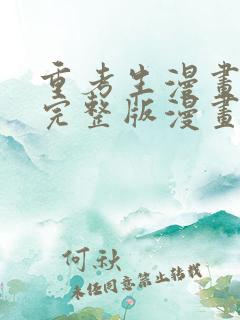 重考生漫畫
完整版漫畫
何秋
未经同意禁止转载